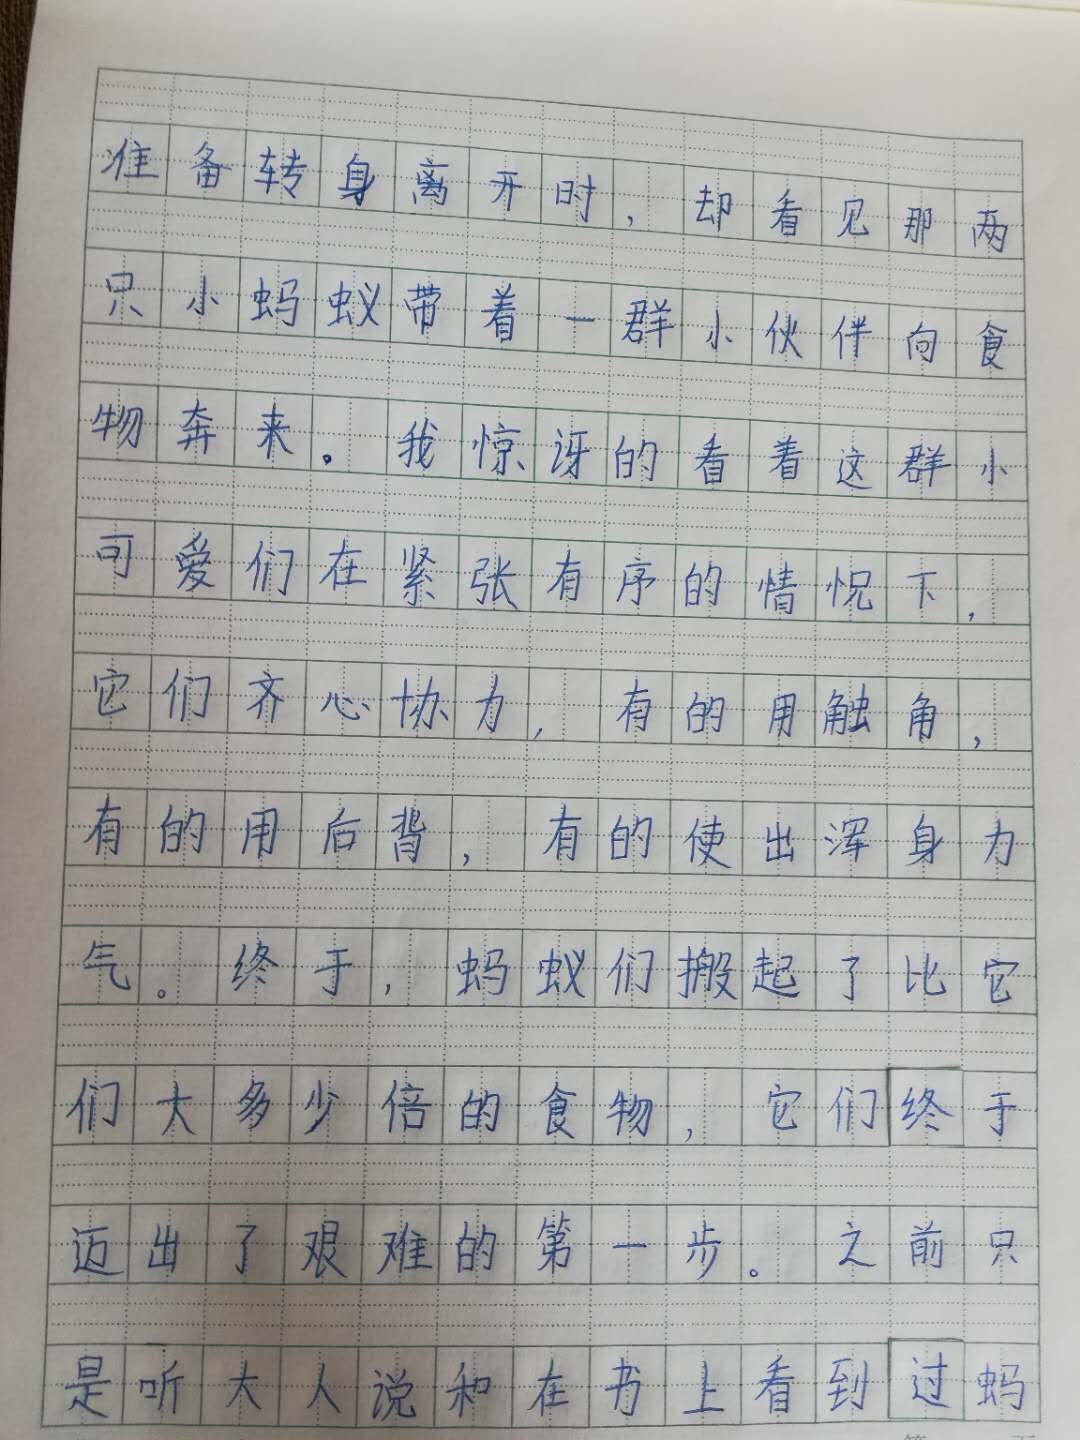 准备转身离开时，却看见那两
只小蚂蚁带着一群小伙伴向食
物奔来。我惊讶的看着这群小
可爱们在紧张有序的情况下，
它们齐心协力，有的用触角，
有的用后背，有的使出浑身力
气。终于，蚂蚁们搬起了比它
们大多少倍的食物，它们终于
迈出了艰难的第一步。之前只
是听大人说和在书上看到过蚂